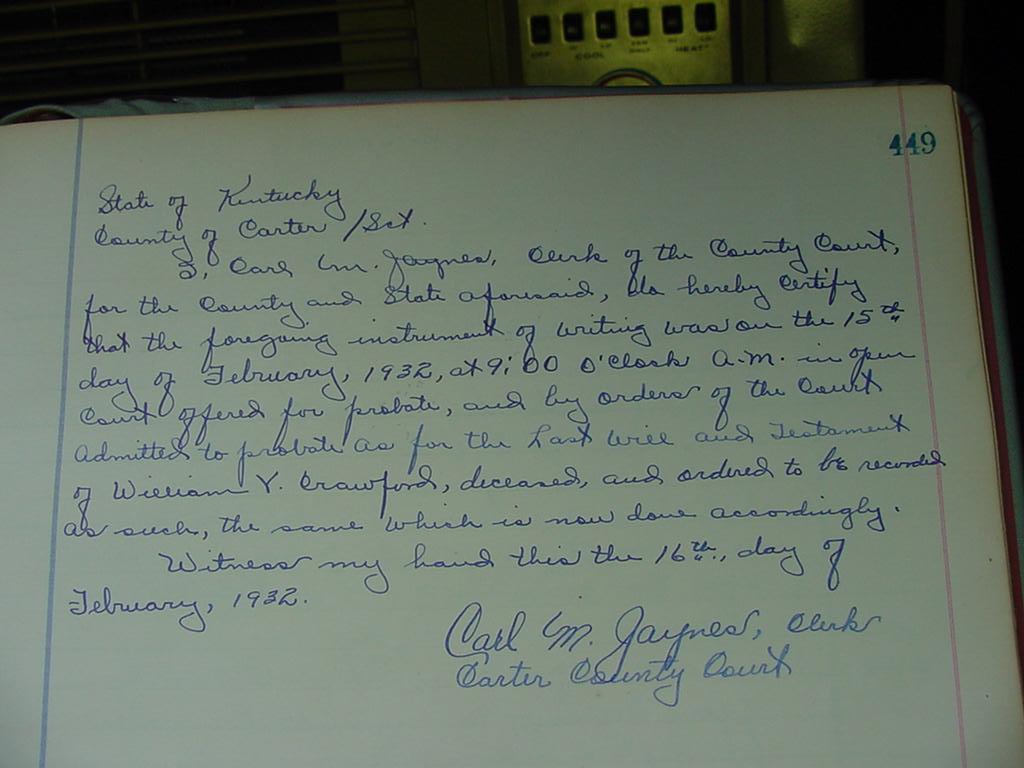 OFF HI LO FAN ONLY HI LO
COOL HEAT
449
State of Kentucky
County of Carter /Sct.
I, Carl M. Jaynes, Clerk of the County Court,
for the County and State aforesaid, do hereby certify
that the foregoing instrument of writing was on the 15th
day of February, 1932, at 9:00 O'Clock A.M. in open
Court offered for probate, and by orders of the Court
admitted to probate as for the Last Will and Testament
of William Y. Crawford, deceased, and ordered to be recorded
as such, the same which is now done accordingly.
Witness my hand this the 16th., day of
February, 1932.
Carl M. Jaynes, Clerk
Carter County Court